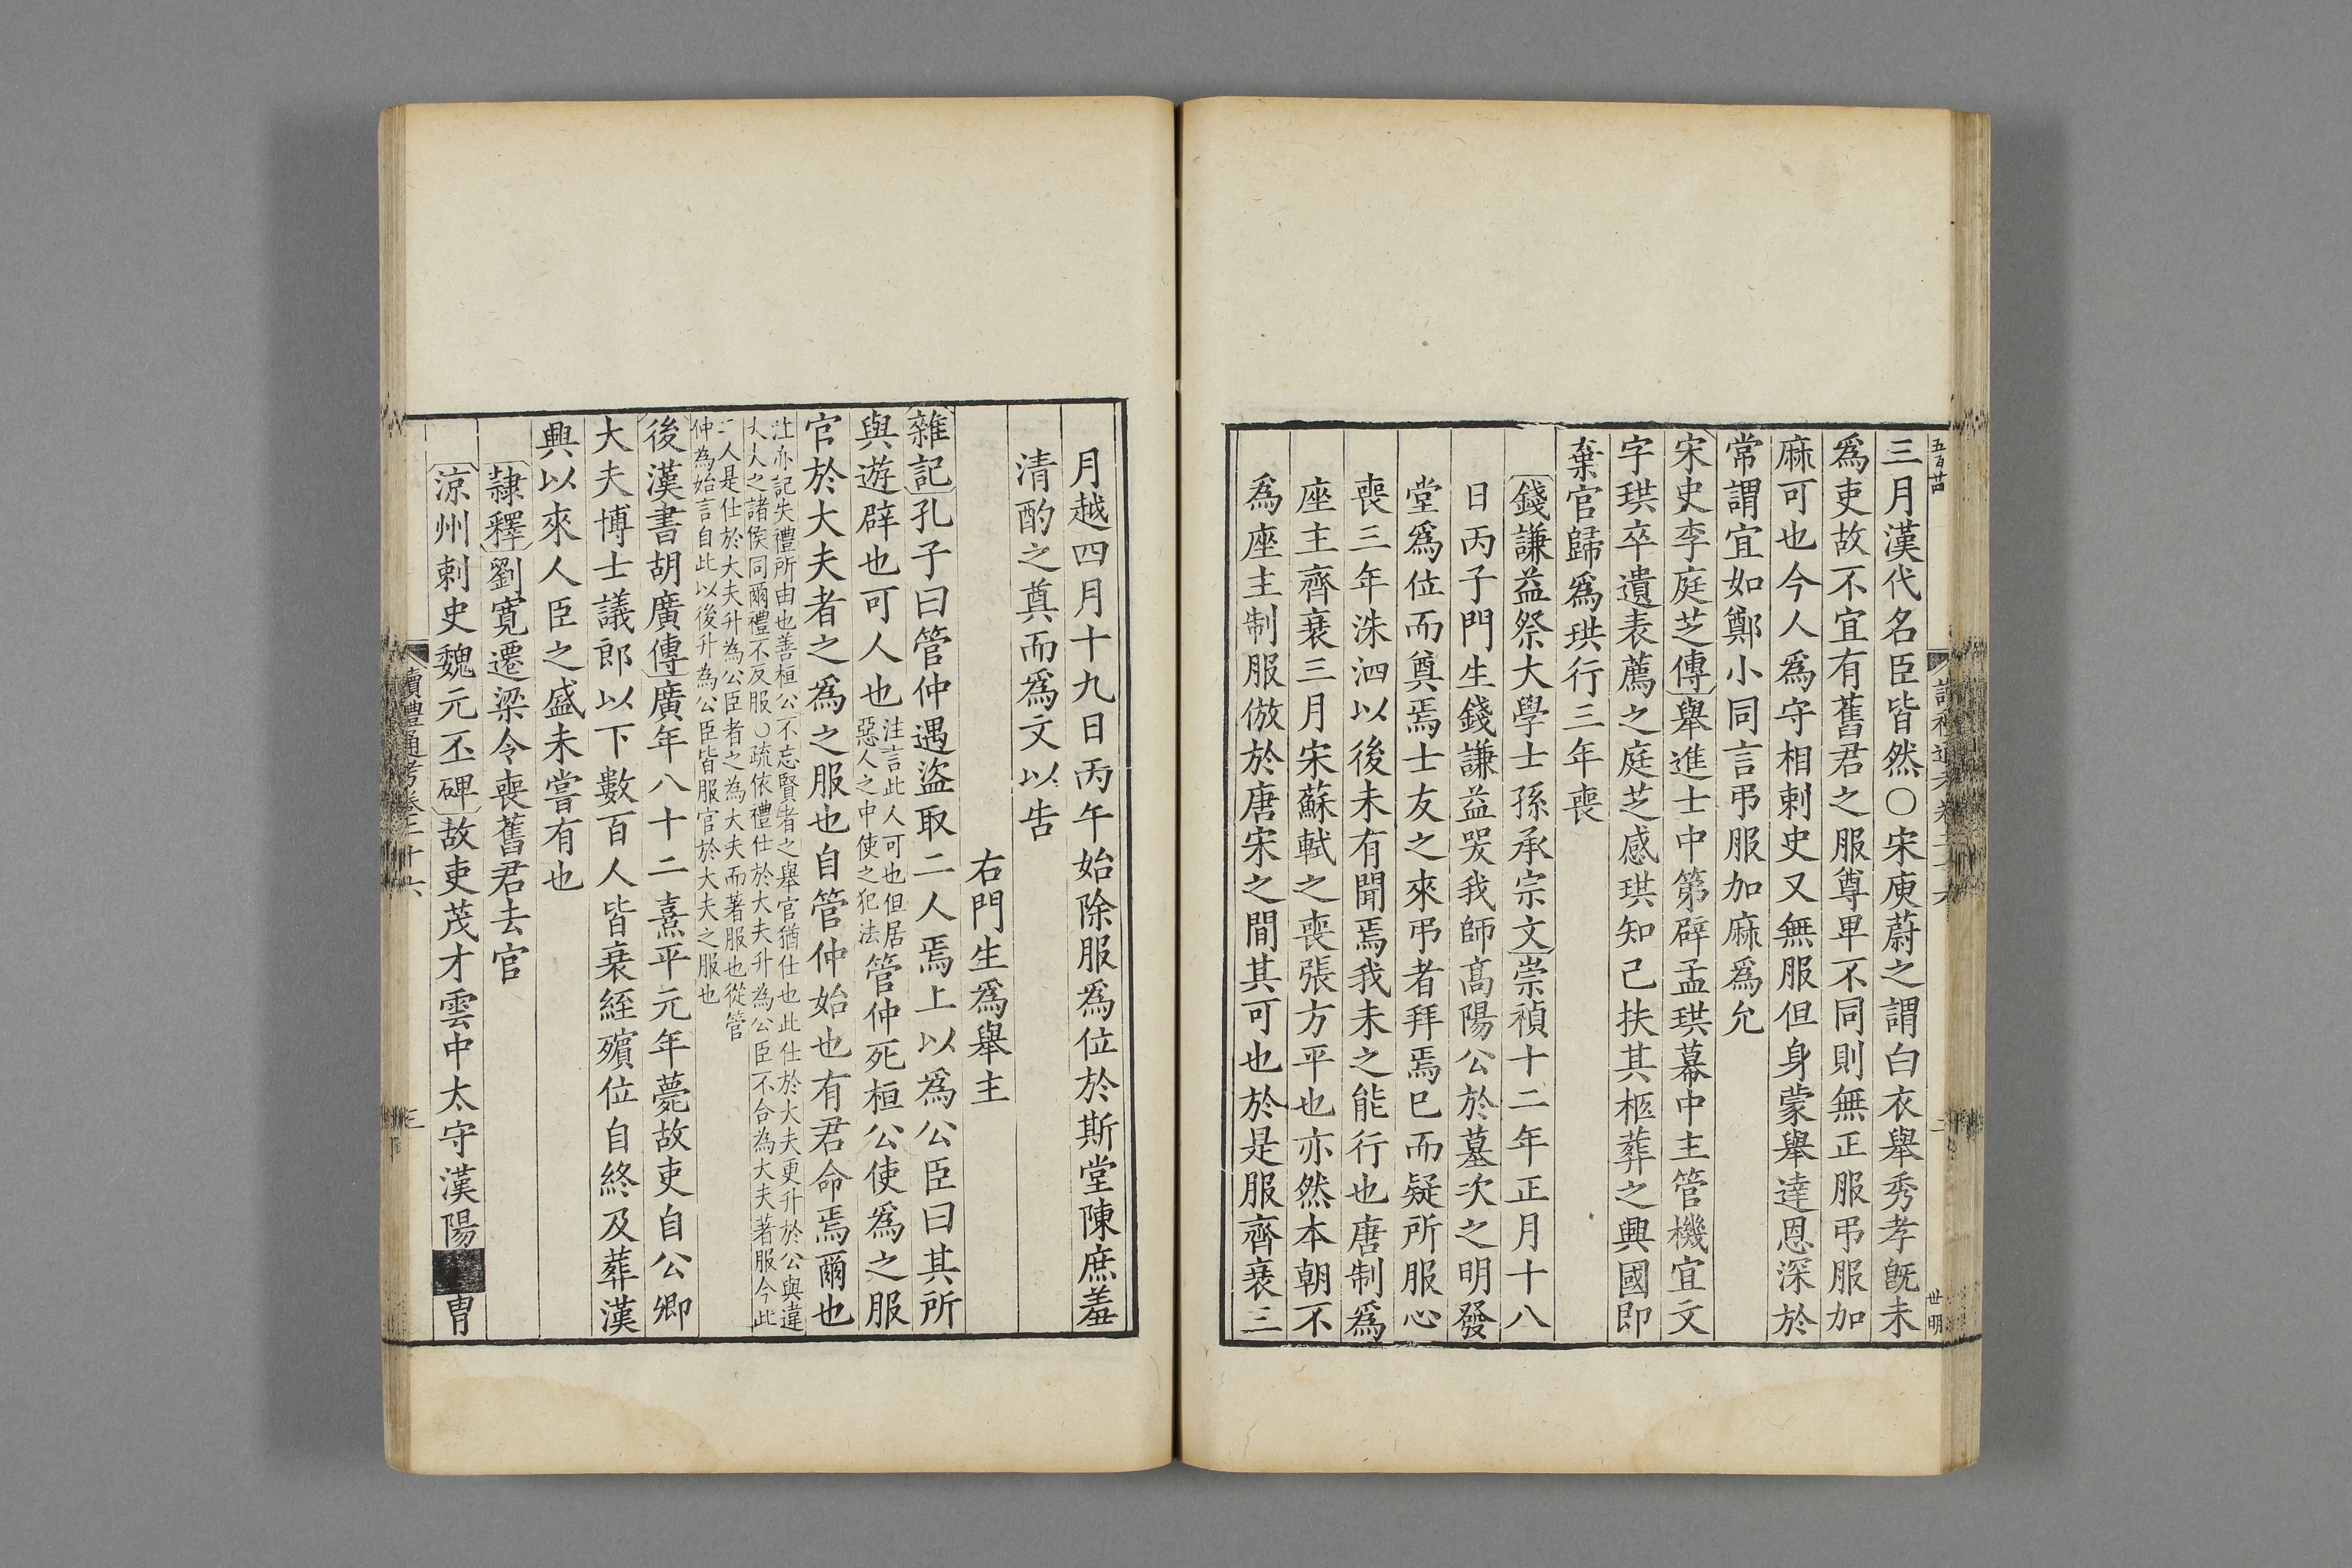 三月漢代名臣皆然〇宋庾蔚之謂白衣舉秀孝旣未
爲吏故不宜有舊君之服尊卑不同則無正服弔服加
麻可也今人爲守相刺史又無服但身蒙舉達恩深於
常謂宜如鄭小同言弔服加麻爲允
宋史李庭芝傳舉進士中第辟孟珙幕中主管機宜文
字珙卒遺表薦之庭芝感珙知己扶其柩葬之興國即
棄官歸爲珙行三年喪
錢謙益祭大學士孫承宗文崇禎十二年正月十八
日丙子門生錢謙益哭我師高陽公於墓次之明發
堂爲位而奠焉士友之來弔者拜焉已而疑所服心
喪三年洙泗以後未有聞焉我未之能行也唐制爲
座主齊衰三月宋蘇軾之喪張方平也亦然本朝不
爲座主制服倣於唐宋之間其可也於是服齊衰三
月越四月十九日丙午始除服爲位於斯堂陳庶羞
清酌之奠而爲文以告
右門生爲舉主
雜記孔子曰管仲遇盜取二人焉上以爲公臣曰其所
與遊辟也可人也注言此人可也但居惡人之中使之犯法管仲死桓公使爲之服
官於大夫者之爲之服也自管仲始也有君命焉爾也
注亦記失禮所由也善桓公不忘賢者之舉官猶仕也此仕於大夫更升於公與違
大人之諸侯同爾禮不反服〇疏依禮仕於大夫升為公臣不合為大夫著服今此
二人是仕於大夫升為公臣者之為大夫而著服也從管
仲為始言自此以後升為公臣皆服官於大夫之服也
後漢書胡廣傳廣年八十二熹平元年薨故吏自公卿
大夫博士議郎以下數百人皆衰絰殯位自終及葬漢
興以來人臣之盛未嘗有也
隷釋劉寬遷梁令喪舊君去官
涼州刺史魏元丕碑故吏茂才雲中太守漢陽 冑
讀禮通考卷三十六
三
五百廿
二
世明